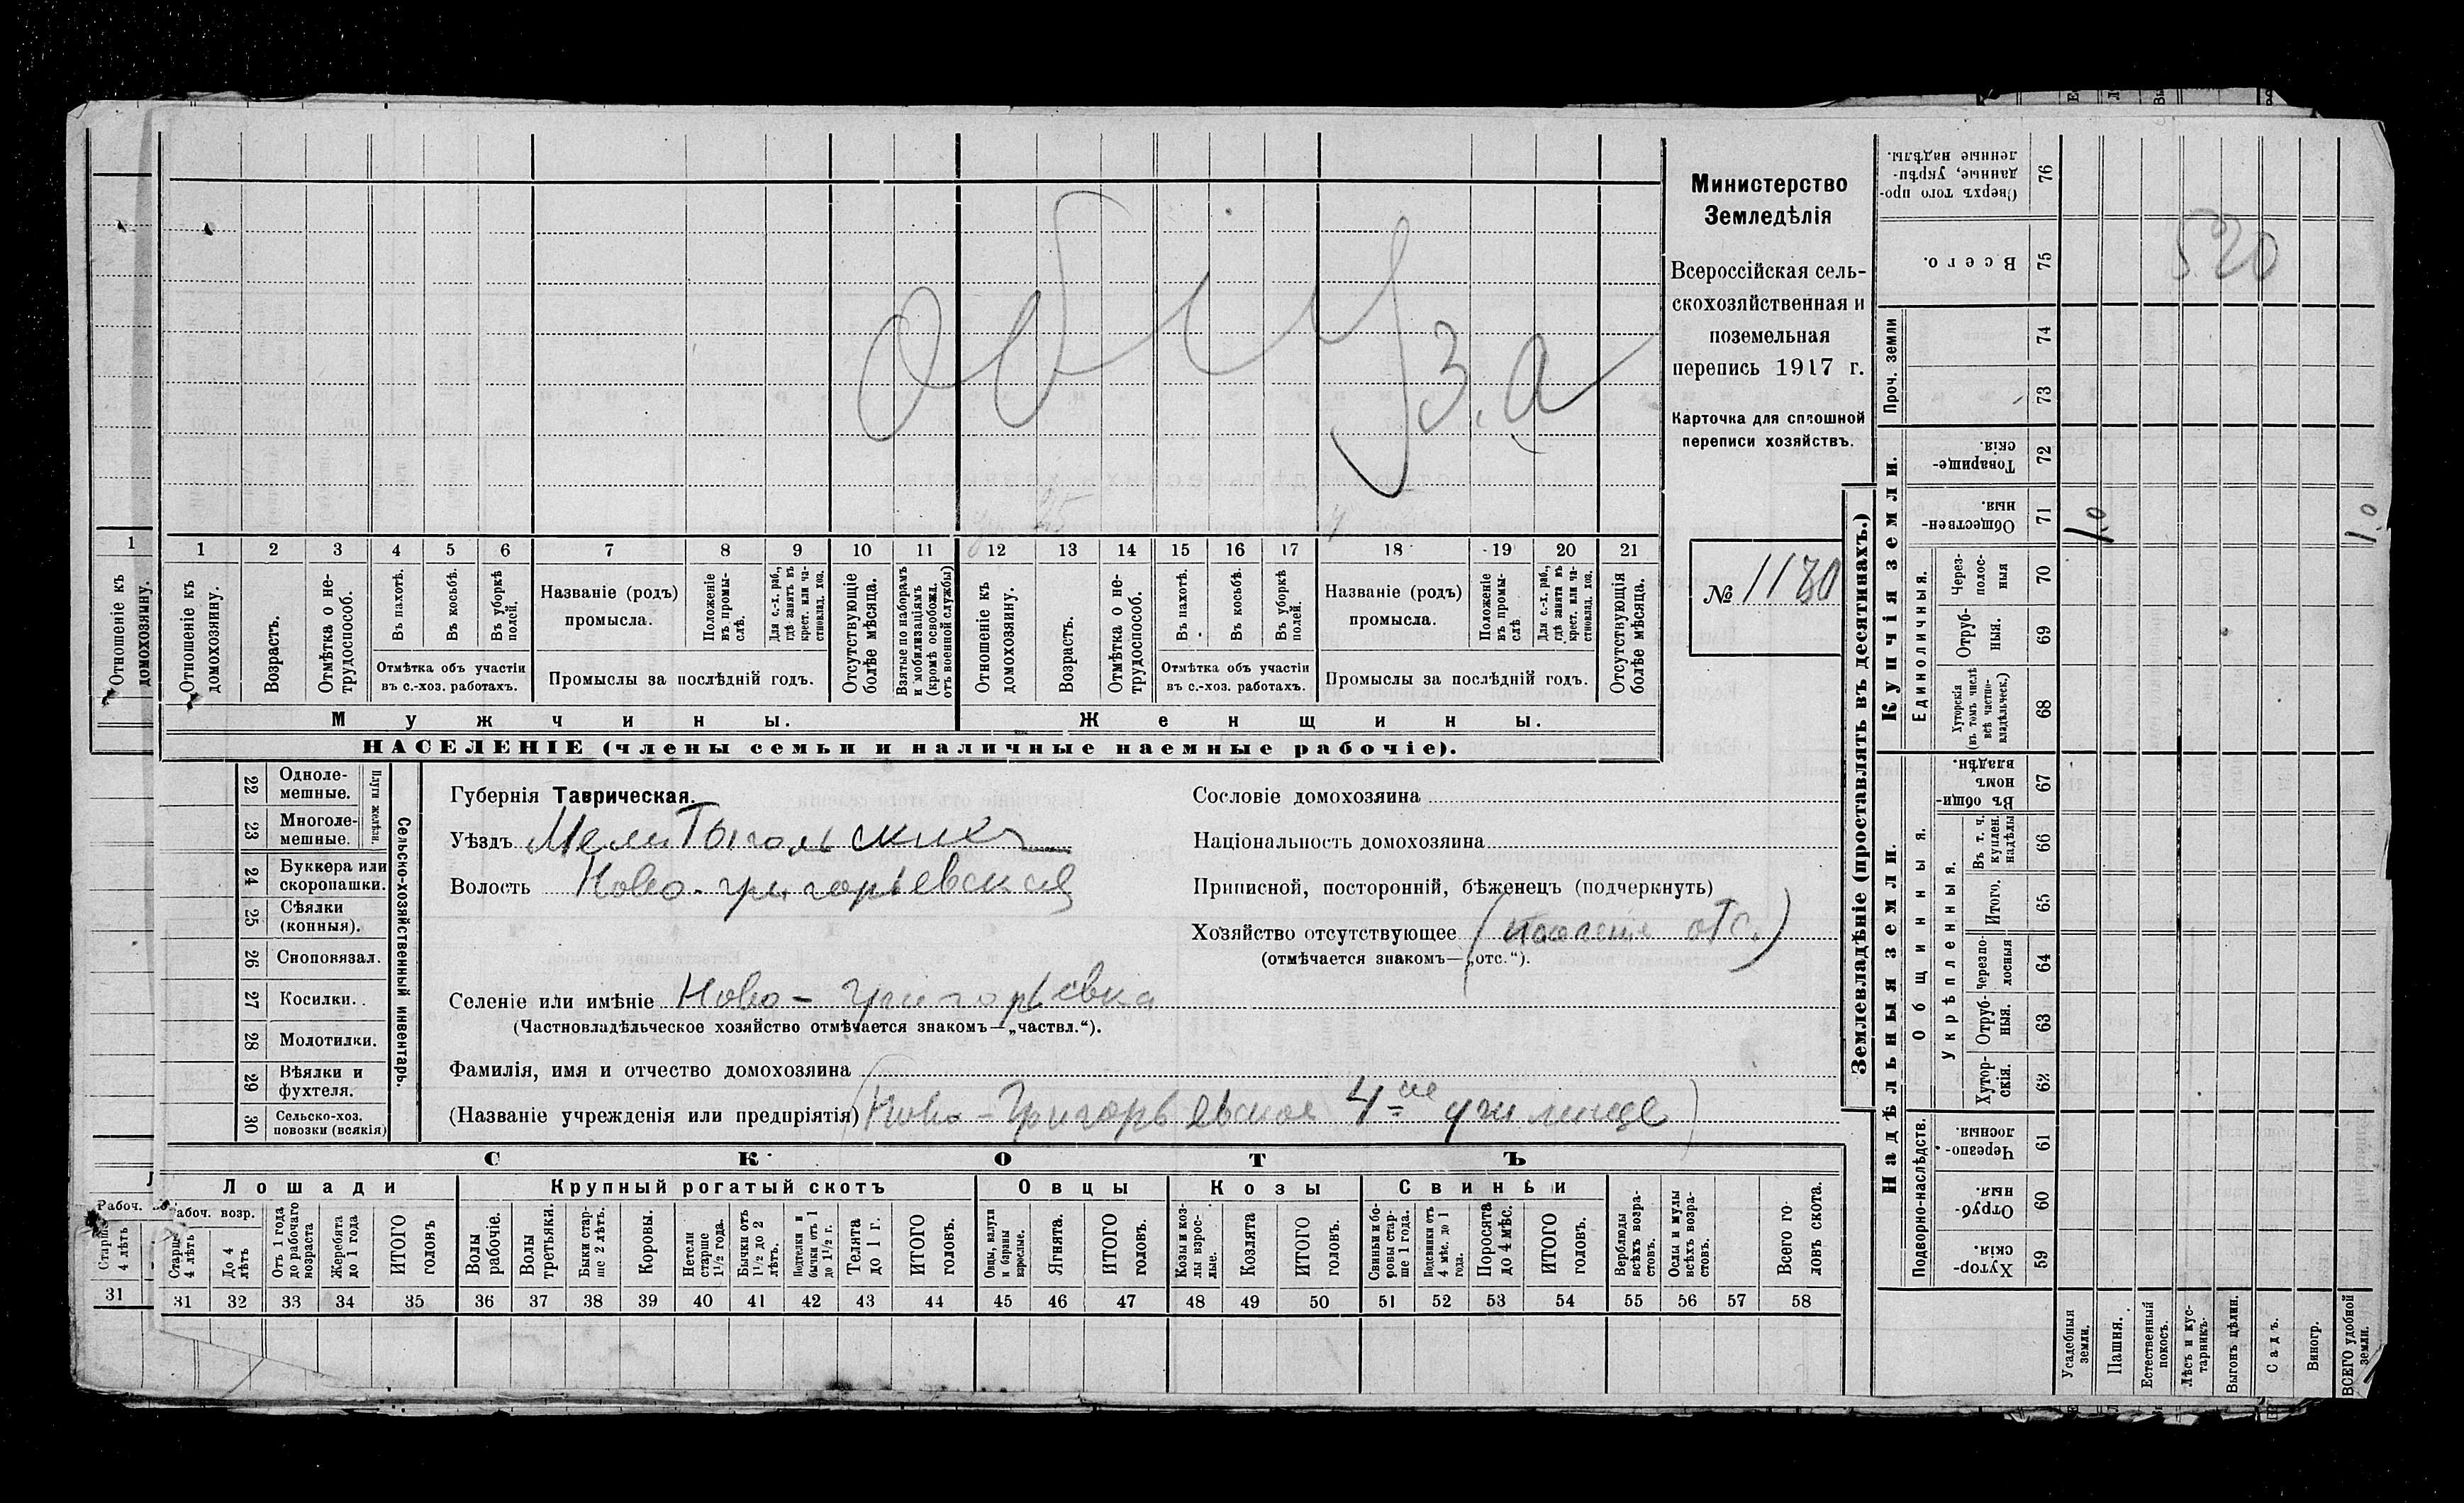 Министерство
Земледѣлія
Всероссійская сель-
скохозяйственная и
поземельная
перепись 1917 г.
Карточка для сплошной
переписи хозяйствъ.
№ 1180
1 2 3 4 5 6 7 8 9 10 11 12 13 14 15 16 17 18 19 20 21
Отношеніе къ домохозяину.
Возрастъ.
Отмѣтка о не-трудоспособ.
Въ пахотѣ.
Въ косьбѣ.
Въ уборкѣ полей.
Отмѣтка объ участіи
въ с.-хоз. работахъ.
Названіе (родъ)
промысла.
Положеніе въ промы-слѣ.
Для с.-х. раб., гдѣ занятъ въ крест. или ча-стновлад. хоз.
Промыслы за послѣдній годъ.
Отсутствующіе болѣе мѣсяца.
Взятые по наборамъ и мобилизаціямъ (кромѣ освобожд. отъ военной службы)
Отношеніе къ домохозяину.
Возрастъ.
Отмѣтка о не-трудоспособ.
Въ пахотѣ.
Въ косьбѣ.
Въ уборкѣ полей.
Отмѣтка объ участіи
въ с.-хоз. работахъ.
Названіе (родъ)
промысла.
Положеніе въ промы-слѣ.
Для с.-х. раб., гдѣ занята въ крест. или ча-стновлад. хоз.
Промыслы за послѣдній годъ.
Отсутствующія болѣе мѣсяца.
Мужчины.
Женщины.
НАСЕЛЕНІЕ (члены семьи и наличные наемные рабочіе).
22 Одноле-мешные.
23 Многоле-мешные.
Плуги желѣзн.
24 Буккера или скоропашки.
25 Сѣялки (конныя).
26 Сноповязал.
27 Косилки.
28 Молотилки.
29 Вѣялки и фухтеля.
30 Сельско-хоз. повозки (всякія)
Сельско-хозяйственный инвентарь.
Губернія Таврическая.
Уѣздъ
Волость Ново-григорьевская
Селеніе или имѣніе Ново-Григорьевка
(Частновладѣльческое хозяйство отмѣчается знакомъ—„частвл.“).
Фамилія, имя и отчество домохозяина
(Названіе учрежденія или предпріятія) Ново-Григорьевское 4-ое училище
Сословіе домохозяина
Національность домохозяина
Приписной, посторонній, бѣженецъ (подчеркнуть)
Хозяйство отсутствующее отс.
(отмѣчается знакомъ—„отс.“).
СКОТЪ
Лошади
Крупный рогатый скотъ
Овцы
Козы
Свиньи
Рабоч. возр.
Старше 4 лѣтъ
До 4 лѣтъ
Отъ 1 года до рабочаго возраста
Жеребята до 1 года
ИТОГО головъ
Волы рабочіе.
Волы третьяки.
Быки стар-ше 2 лѣтъ.
Коровы.
Нетели старше 1½ года.
Бычки отъ 1½ до 2 лѣтъ.
Подтелки и бычки отъ 1 до 1½ г.
Телята до 1 г.
ИТОГО головъ.
Овцы, валухи и бараны взрослые.
Ягнята.
ИТОГО головъ.
Козы и коз-лы взрос-лые.
Козлята
ИТОГО головъ.
Свиньи и бо-ровы стар-ше 1 года.
Подсвинки отъ 4 мѣс. до 1 года.
Поросята до 4 мѣс.
ИТОГО головъ.
Верблюды всѣхъ возра-стовъ.
Ослы и мулы всѣхъ возра-стовъ.
Всего го-ловъ скота.
31 32 33 34 35 36 37 38 39 40 41 42 43 44 45 46 47 48 49 50 51 52 53 54 55 56 57 58
Землевладѣніе (проставлять въ десятинахъ.)
Надѣльныя земли.
Купчія земли.
Проч. земли
Подворно-наслѣдств.
Общинныя.
Укрѣпленныя.
Единоличныя.
59 Хутор-скія.
60 Отруб-ныя.
61 Черезпо-лосныя.
62 Хутор-скія.
63 Отруб-ныя.
64 Черезпо-лосныя
65 Итого.
66 Въ т. ч. куплен. надѣлы
67 Въ общин-номъ владѣн.
68 Хуторскія (въ томъ числѣ всѣ частно-владѣльческ.)
69 Отруб-ныя.
70 Через-полос-ныя
71 Обществен-ныя.
72 Товарище-скія.
73
74
75 Всего.
76 Сверхъ того про-данные, укрѣп-ленные надѣлы.
Усадебныя земли.
Пашня.
Естественный покосъ.
Лѣсъ и кус-тарникъ.
Выгонъ цѣлин.
Садъ.
Виногр.
ВСЕГО удобной земли.
1.0
1.0
520